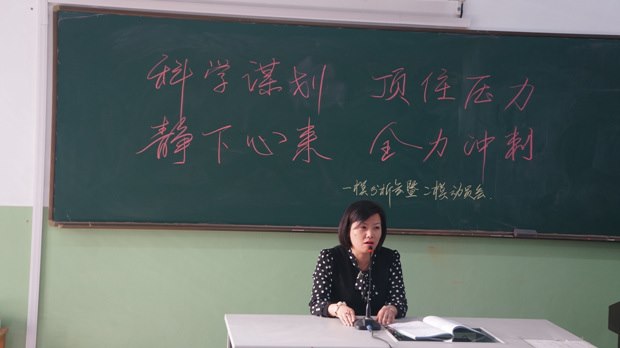 科学谋划 顶住压力
静下心来 全力冲刺
一模分析会暨二模动员会.